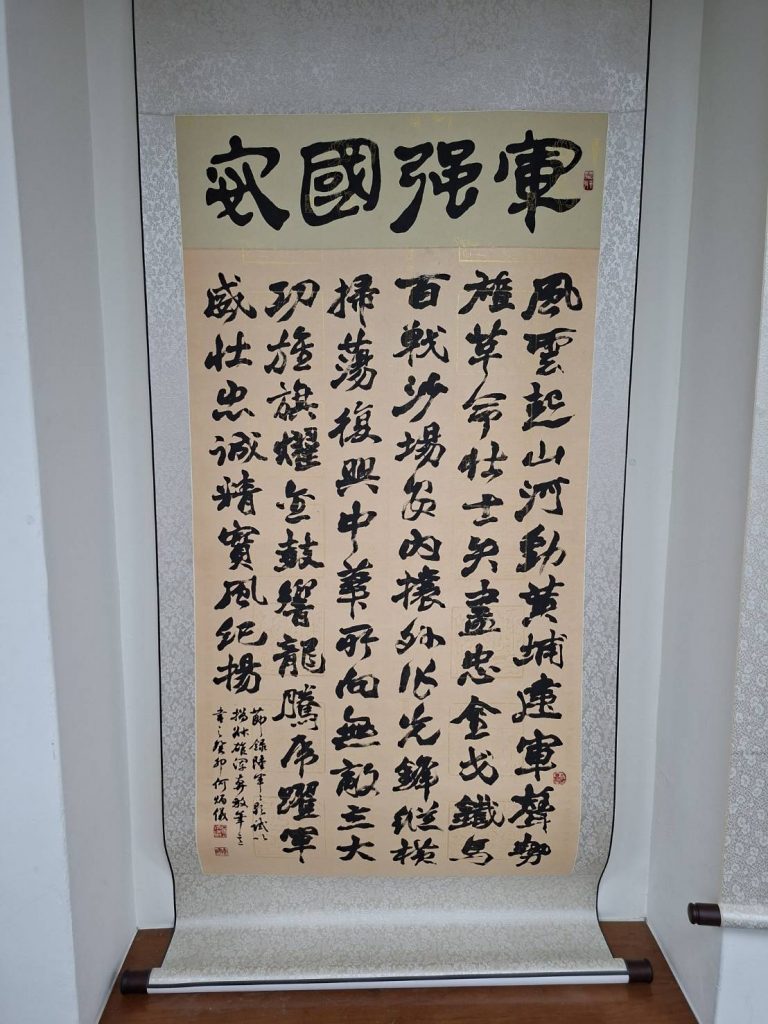 軍强國安
風雲起山河動黃埔建軍聲勢
雄革命壯士矢盡忠金戈鐵馬
百戰沙場安內攘外作先鋒縱橫
掃蕩復興中華所向無敵立大
功旌旗耀金鼓響龍騰虎躍軍
威壯忠誠精實風紀揚
節錄陸軍軍歌試以
雄渾奔放筆意
書之癸卯何炳儀